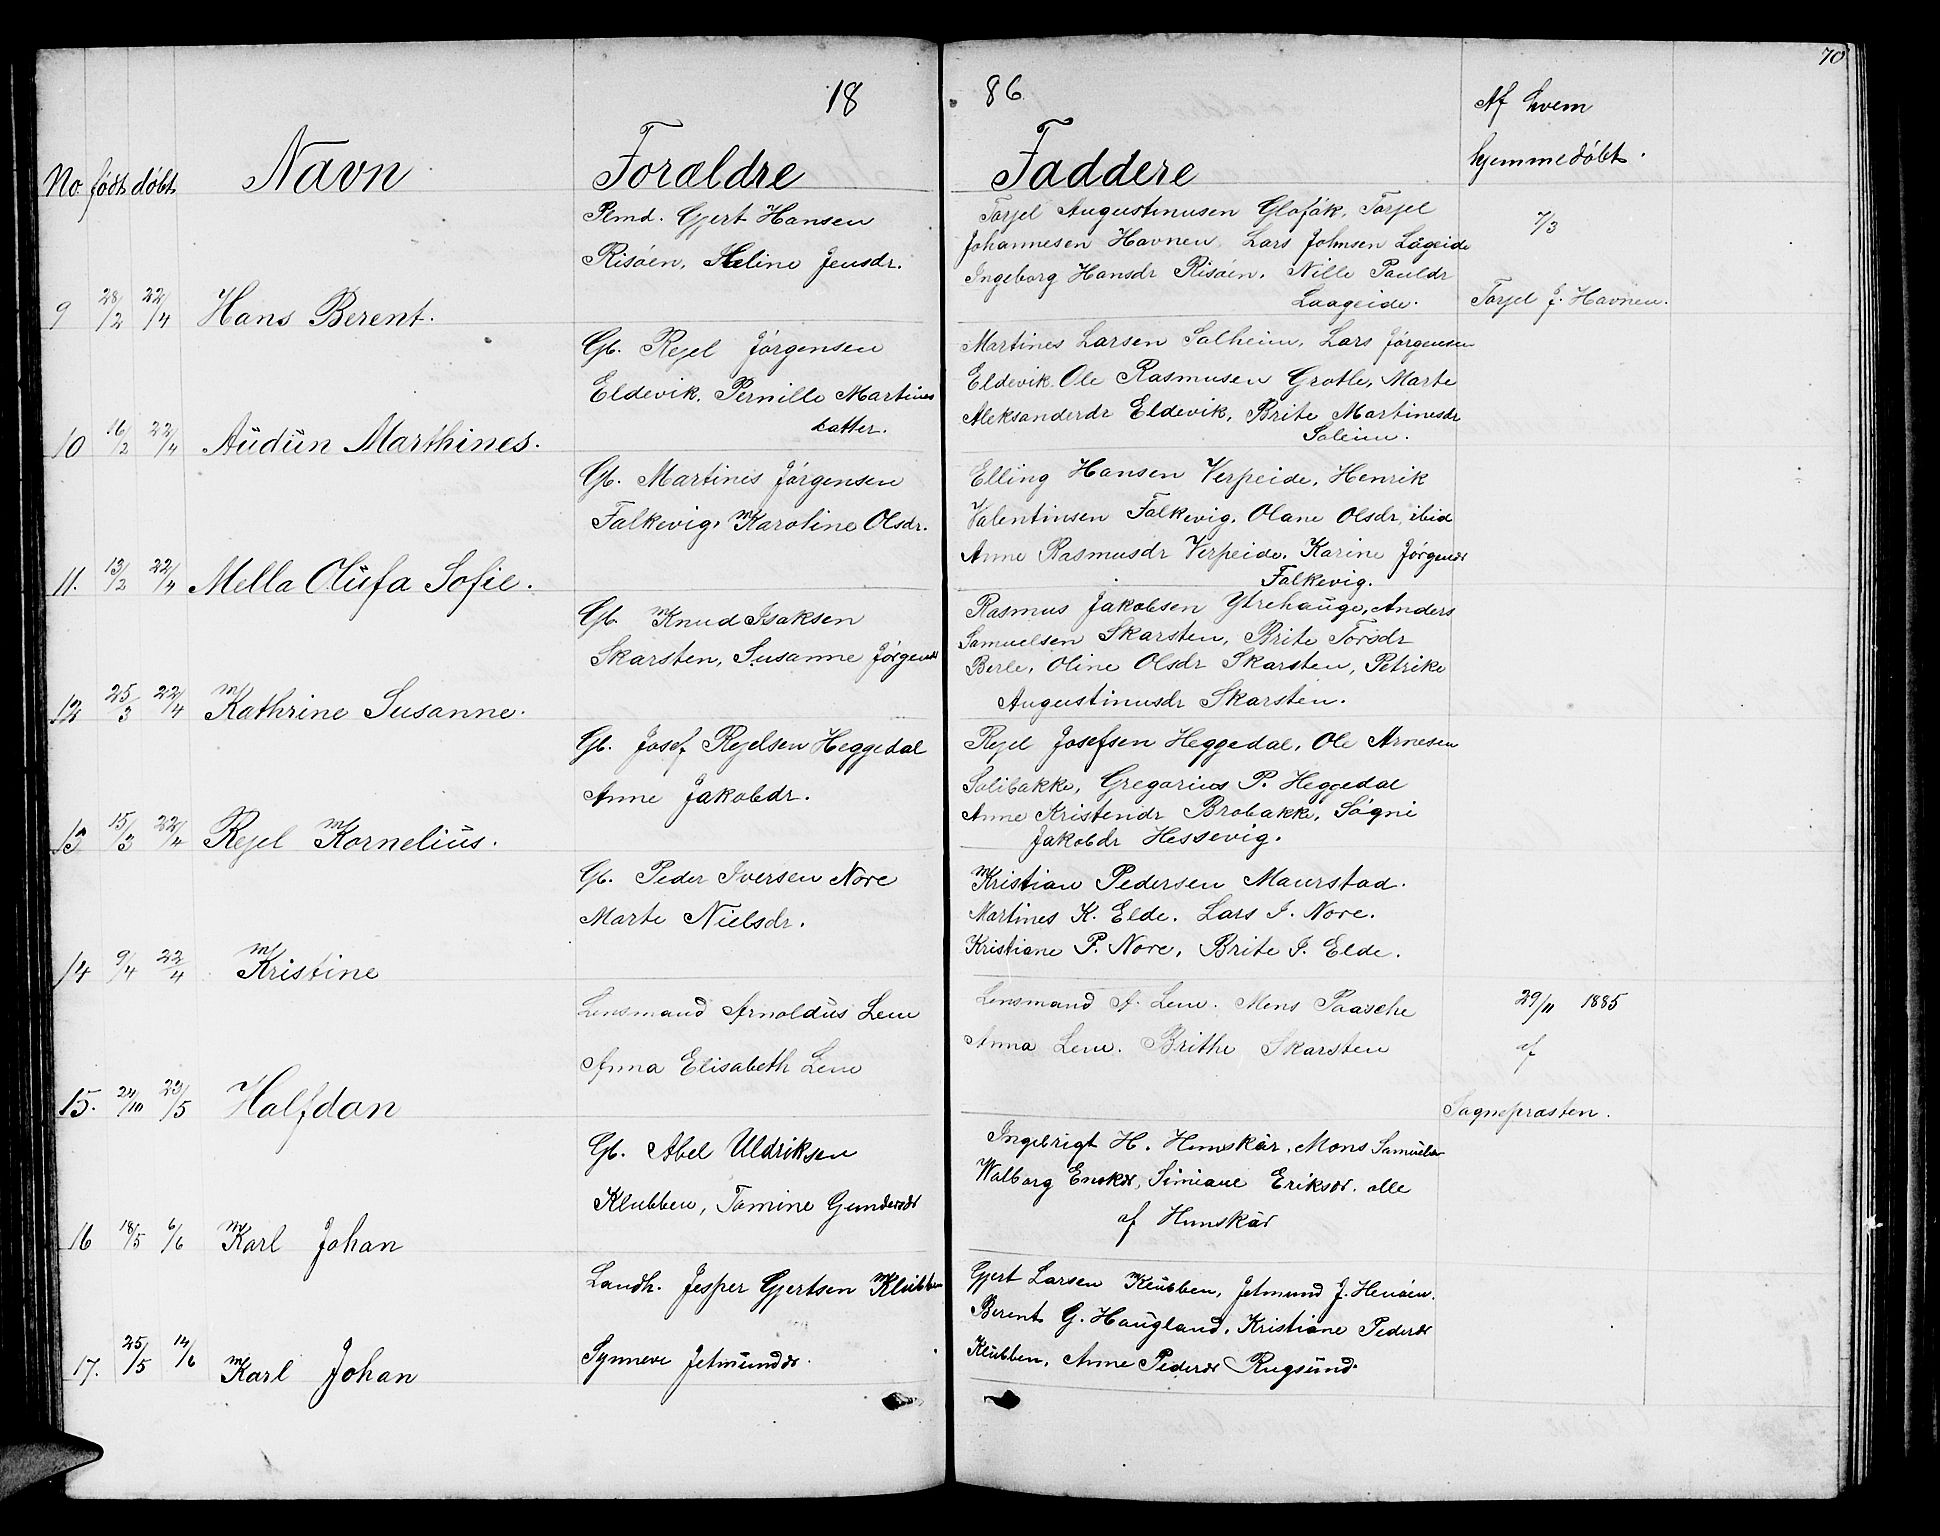 70
18 86
Af hvem
hjemmedøbt.
No født døbt Navn Forældre Faddere
Plmd. Gjert Hansen
Risøen, Heline Jensdr.
Torjel Augustinusen Glofåk, Torjel
Johannesen Havnen, Lars Johnsen Lågeide
Ingeborg Hansdr Risøen, Nille Pauldr
Laageide.
7/3
Torjel J. Havnen.
9 28/2 22/4 Hans Berent.
Gb. Rejel Jörgensen
Eldevik, Pernille Martines
datter.
Martines Larsen Salheim, Lars Jörgensen
Eldevik. Ole Rasmusen Grotle, Marte
Aleksanderdr Eldevik, Brite Martinesdr
Soleim.
10 16/2 22/4 Audun Marthines.
Gb. Martines Jörgensen
Falkevig, Karoline Olsdr.
Elling Hansen Verpeide, Henrik
Valentinsen Falkevig, Olane Olsdr, ibid
Anne Rasmusdr Verpeide, Karine Jørgendr
Falkevig.
11. 13/2 22/4 Mella Olufa Sofie.
Gb. Knud Isaksen
Skarsten, Susanne Jørgendr
Rasmus Jakobsen Ytrehauge, Anders
Samuelsen Skarsten, Brite Torsdr
Berle, Oline Olsdr Skarsten, Petrike
Augustinusdr Skarsten.
12 25/3 22/4 Kathrine Susanne.
Gb. Josef Rejelsen Heggedal
Anne Jakobdr.
Rejel Josefsen Heggedal, Ole Arnesen
Solibakke, Gregorius P. Heggedal
Anne Kristendr Brobakke, Sögni
Jakobdr Hessevig.
13 15/3 22/4 Rejel Kornelius.
Gb. Peder Iversen Nore
Marte Nielsdr.
Kristian Pedersen Maurstad.
Martines K. Elde. Lars I. Nore.
Kristiane P. Nore, Brite I. Elde.
14 9/4 22/4 Kristine
Lensmand Arnoldus Lem
Anna Elisabeth Lem
Lensmand A. Lem. Mens Paasche
Anna Lem. Brithe Skarsten
29/11 1885
af
Sognepræsten.
15. 24/10 23/5 Halfdan
Gb. Abel Uldriksen
Klubben, Tomine Gundersdr
Ingebrigt H. Hunskår, Mons Samuelsn
Walborg Enokdr, Simiane Eriksdr. alle
af Hunskår
16 18/5 6/6 Karl Johan
Landh. Jesper Gjertsen Klubben
Synneve Jetmunddr.
Gjert Larsen Klubben, Jetmund J. Henøen.
Berent G. Haugland, Kristiane Pedersdr
Klubben, Anne Pedersdr Rugsund.
17. 25/5 14/6 Karl Johan